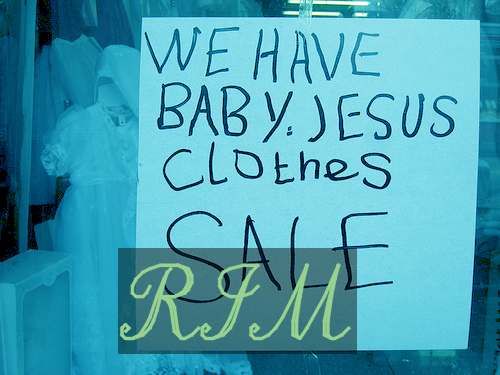 WE HAVE
BABY. JESUS
Clothes
SALE
RIM